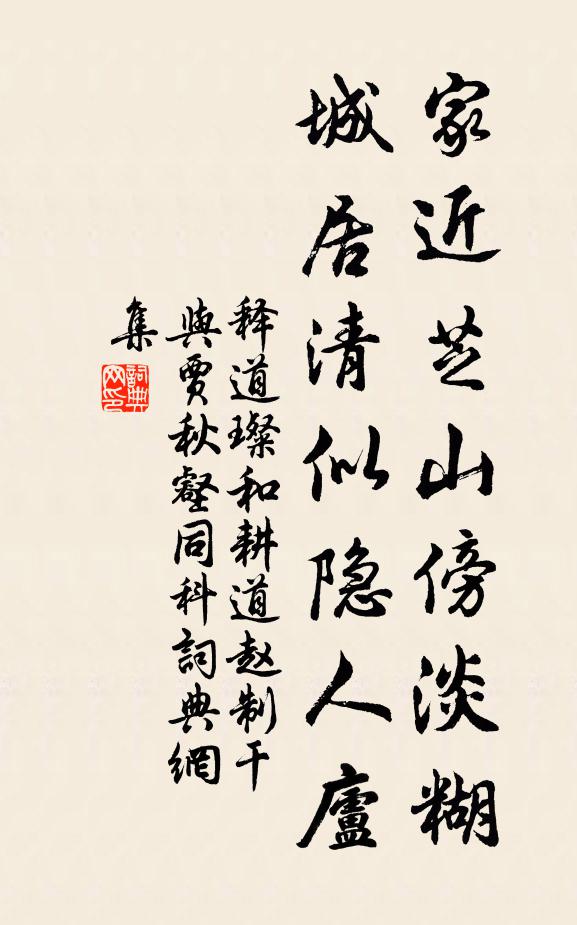 家近芝山傍淡糊
城居清似隐人廬
释道璨和耕道赵制干
與賈秋壑同科詞典網
集
詞典网印